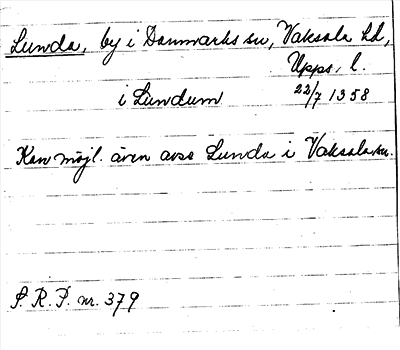 Lunda, by i Danmarks sn, Vaksala hd,
Upps. l.
i Lundum 22/7 1358
Kan möjl. även avse Lunda i Vaksala sn.
S. R. P. nr. 379